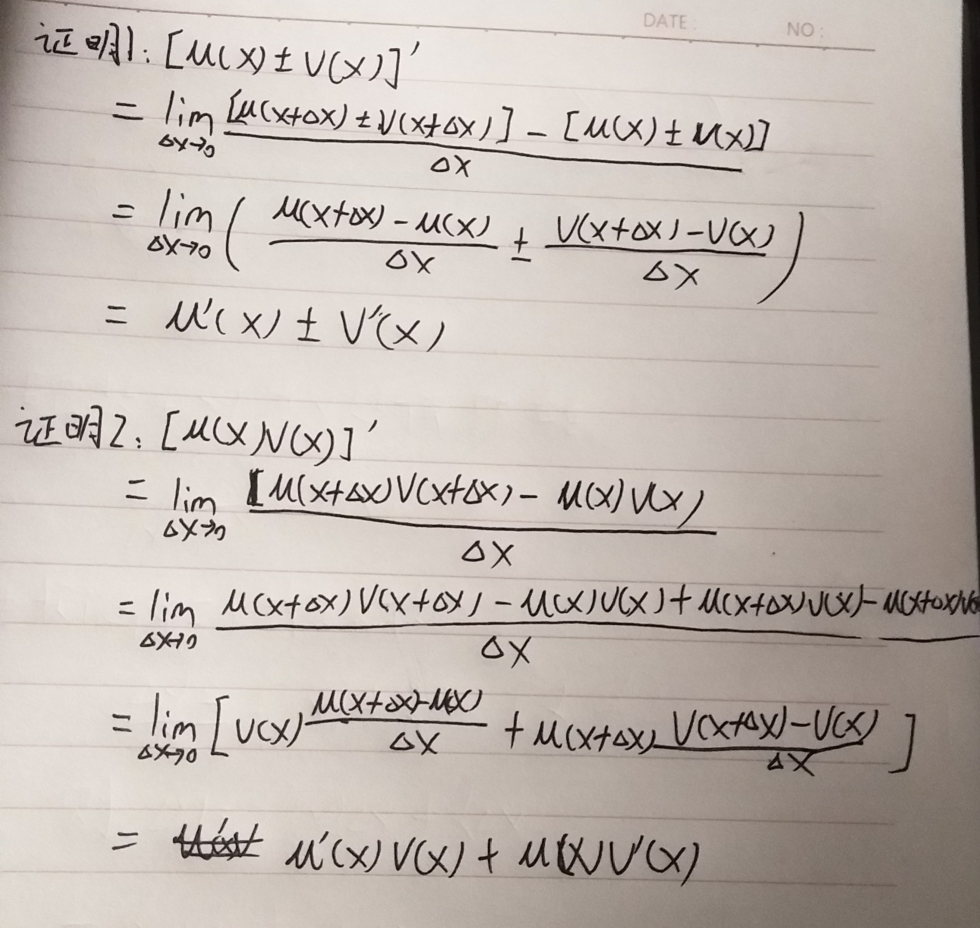 DATE: NO:
证明1: [u(x)±v(x)]'
= lim Δx→0 [u(x+Δx)±v(x+Δx)] - [u(x)±u(x)] / Δx
= lim Δx→0 ( u(x+Δx)-u(x) / Δx ± v(x+Δx)-v(x) / Δx )
= u'(x) ± v'(x)
证明2: [u(x)v(x)]'
= lim Δx→0 [u(x+Δx)v(x+Δx) - u(x)v(x) / Δx
= lim Δx→0 u(x+Δx)v(x+Δx) - u(x)v(x) + u(x+Δx)v(x) - u(x+Δx) / Δx
= lim Δx→0 [ v(x) u(x+Δx)-u(x) / Δx + u(x+Δx) v(x+Δx)-v(x) / Δx ]
= u'(x)v(x) + u(x)v'(x)